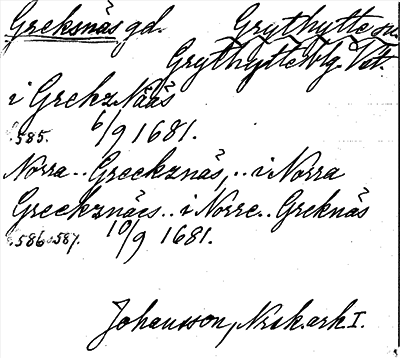 Greksnäs gd. Grythytte sn.
Grythytte bg. Vstl.
i GrekzNääs
s. 585. 6/9 1681.
Norra.. Greekznäs,.. i Norra
Greekznäes.. i Norre.. Greknäs
s. 586 s. 587. 10/9 1681.
Johansson, N:s k. ark I.